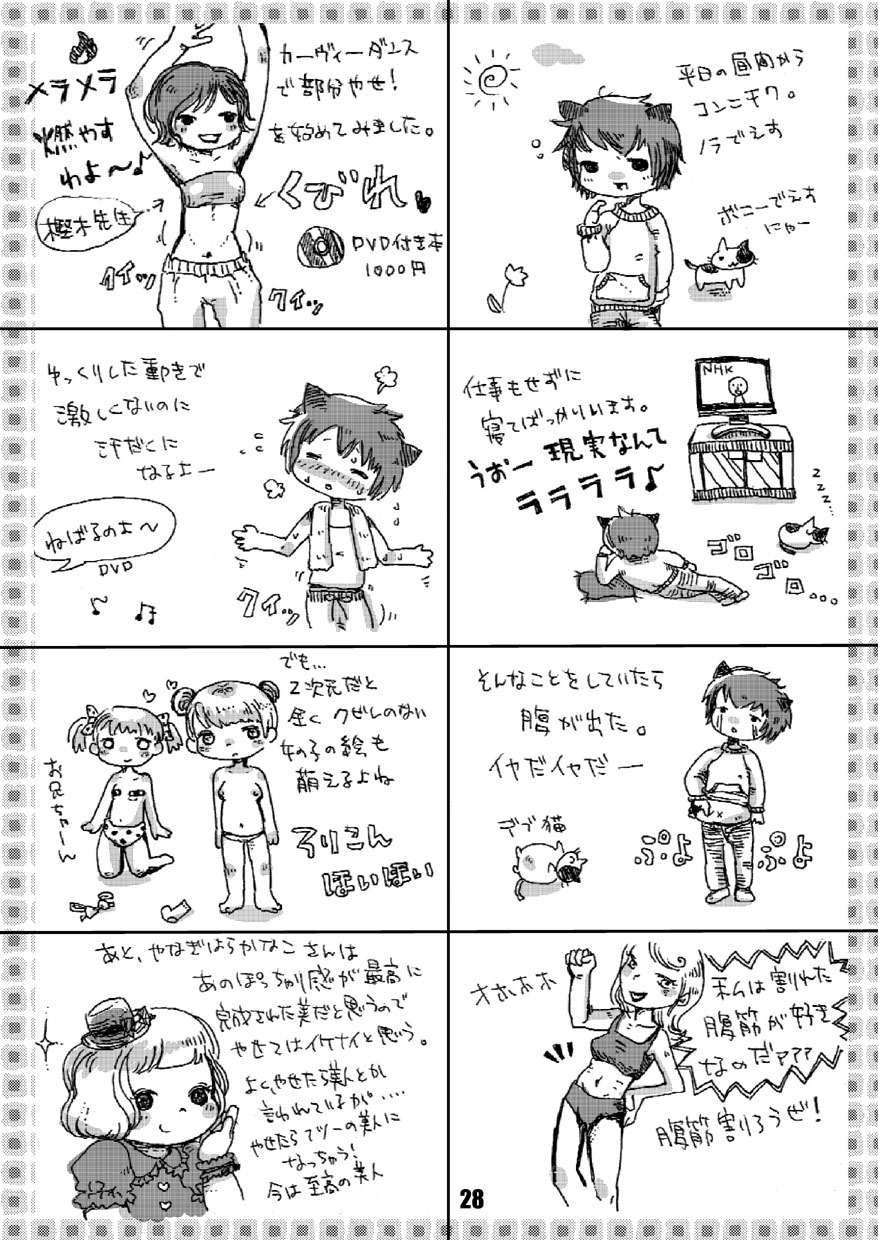 平日の昼間から
コンニチワ。
ノラでえす
ボニーでえす
にゃー
仕事もせずに
寝てばっかりいます。
うおー現実なんて
ララララ♪
NHK
zzz...
ゴロ
ゴロ...
そんなことをしていたら
腹が出た。
イヤだイヤだー
デブ猫
ぷよ
ぷよ
オホホホ
私は割れた
腹筋が好き
なのだァァァ
腹筋割ろうぜ！
カーヴィーダンス
で部分やせ！
を始めてみました。
メラメラ
燃やす
わよ～♪
樫木先生
くびれ♥
DVD付き本
1000円
クイッ
クイッ
ゆっくりした動きで
激しくないのに
汗だくに
なるよー
ねばるのよ～
DVD
クイッ
あと、やなぎはらかなこさんは
あのぽっちゃり感が最高に
完成された美だと思うので
やせてはイケナイと思う。
よくやせたら美人とか
言われているが....
やせたらフツーの美人に
なっちゃう！
今は至高の美人
28